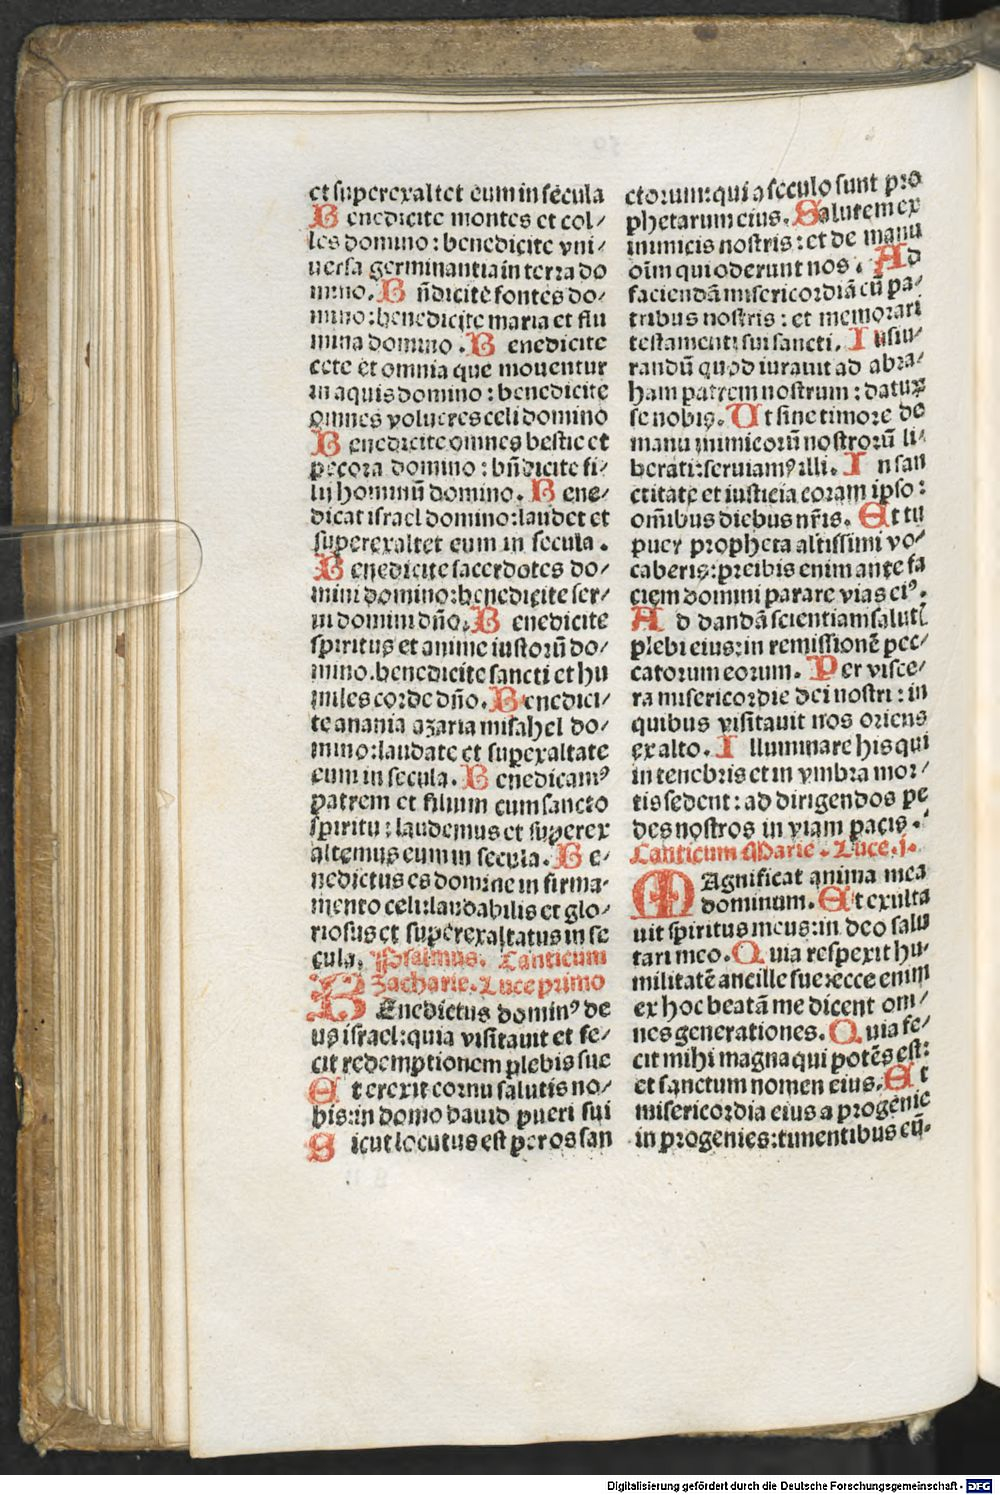 et superexaltet eum in secula
Benedicite montes et col/
les domino: benedicite vni/
uersa germinantia in terra do
mino. Bn̄dicite fontes do/
mino: benedicite maria et flu
mina domino. Benedicite
cete et omnia que mouentur
in aquis domino: benedicite
omnes volucres celi domino
Benedicite omnes bestie et
pecora domino: bn̄dicite fi/
lij hominū domino. Bene/
dicat israel domino: laudet et
superexaltet eum in secula.
Benedicite sacerdotes do/
mini domino: benedicite ser/
ui domini dn̄o. Benedicite
spiritus et anime iustorū do/
mino. benedicite sancti et hu
miles corde dn̄o. Benedici/
te anania azaria misahel do/
mino: laudate et superexaltate
eum in secula. Benedicamꝰ
patrem et filium cum sancto
spiritu: laudemus et superex
altemus eum in secula. Be/
nedictus es domine in firma/
mento celi: laudabilis et glo/
riosus et superexaltatus in se
cula. Psalmus. Canticum
Zacharie. Luce primo
BEnedictus dominꝰ de
us israel: quia visitauit et fe/
cit redemptionem plebis sue
Et erexit cornu salutis no/
bis: in domo dauid pueri sui
Sicut locutus est per os san
ctorum: qui a seculo sunt pro
phetarum eius. Salutem ex
inimicis nostris: et de manu
oīm qui oderunt nos. Ad
faciendā misericordiā cū pa/
tribus nostris: et memorari
testamenti sui sancti. Iusiu/
randū quod iurauit ad abra/
ham patrem nostrum: daturū
se nobis. Ut sine timore de
manu inimicorū nostrorū li/
berati: seruiamꝰ illi. In san
ctitate et iusticia coram ipso:
omībus diebus nr̄is. Et tu
puer propheta altissimi vo/
caberis: preibis enim ante fa
ciem domini parare vias eiꝰ.
Ad dandā scientiam salutī
plebi eius: in remissionē pec/
catorum eorum. Per visce/
ra misericordie dei nostri: in
quibus visitauit nos oriens
ex alto. Illuminare his qui
in tenebris et in vmbra mor/
tis sedent: ad dirigendos pe
des nostros in viam pacis.
Canticum Marie. Luce. j.
MAgnificat anima mea
dominum. Et exulta
uit spiritus meus: in deo salu
tari meo. Quia respexit hu/
militatē ancille sue: ecce enim
ex hoc beatā me dicent om/
nes generationes. Quia fe/
cit mihi magna qui potēs est:
et sanctum nomen eius. Et
misericordia eius a progenie
in progenies: timentibus eū.
Digitalisierung gefördert durch die Deutsche Forschungsgemeinschaft - DFG